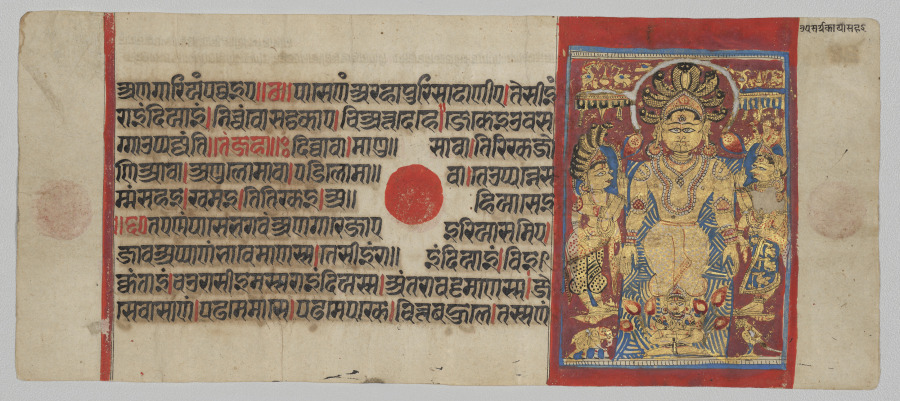 अणगारिअं पव्वइए ॥ पासे णं अरहा पुरिसादाणीए । तेसीइं
राइंदिआइं । निच्चं वोसट्ठकाए । चिअत्तदेहे । जे केइ उवस
ग्गा उप्पज्जंति ॥ तं जहा ॥ दिव्वा वा । माणुसा वा । तिरिक्खजो
णिआ वा । अणुलोमा वा । पडिलोमा वा । ते उप्पन्ने स
म्मं सहइ । खमइ । तितिक्खइ । अहियासेइ
॥ तए णं से पासे भगवं अणगारे जाए इरियासमिए ।
जाव अप्पाणं भावेमाणस्स । तेसीइं राइंदिआइं । विइ
क्कंताइं । चउरासीइमस्स राइंदिअस्स । अंतरा वट्टमाणस्स । जे
से पढमे मासे । पढमे पक्खे । चित्तबहुले । तस्स णं